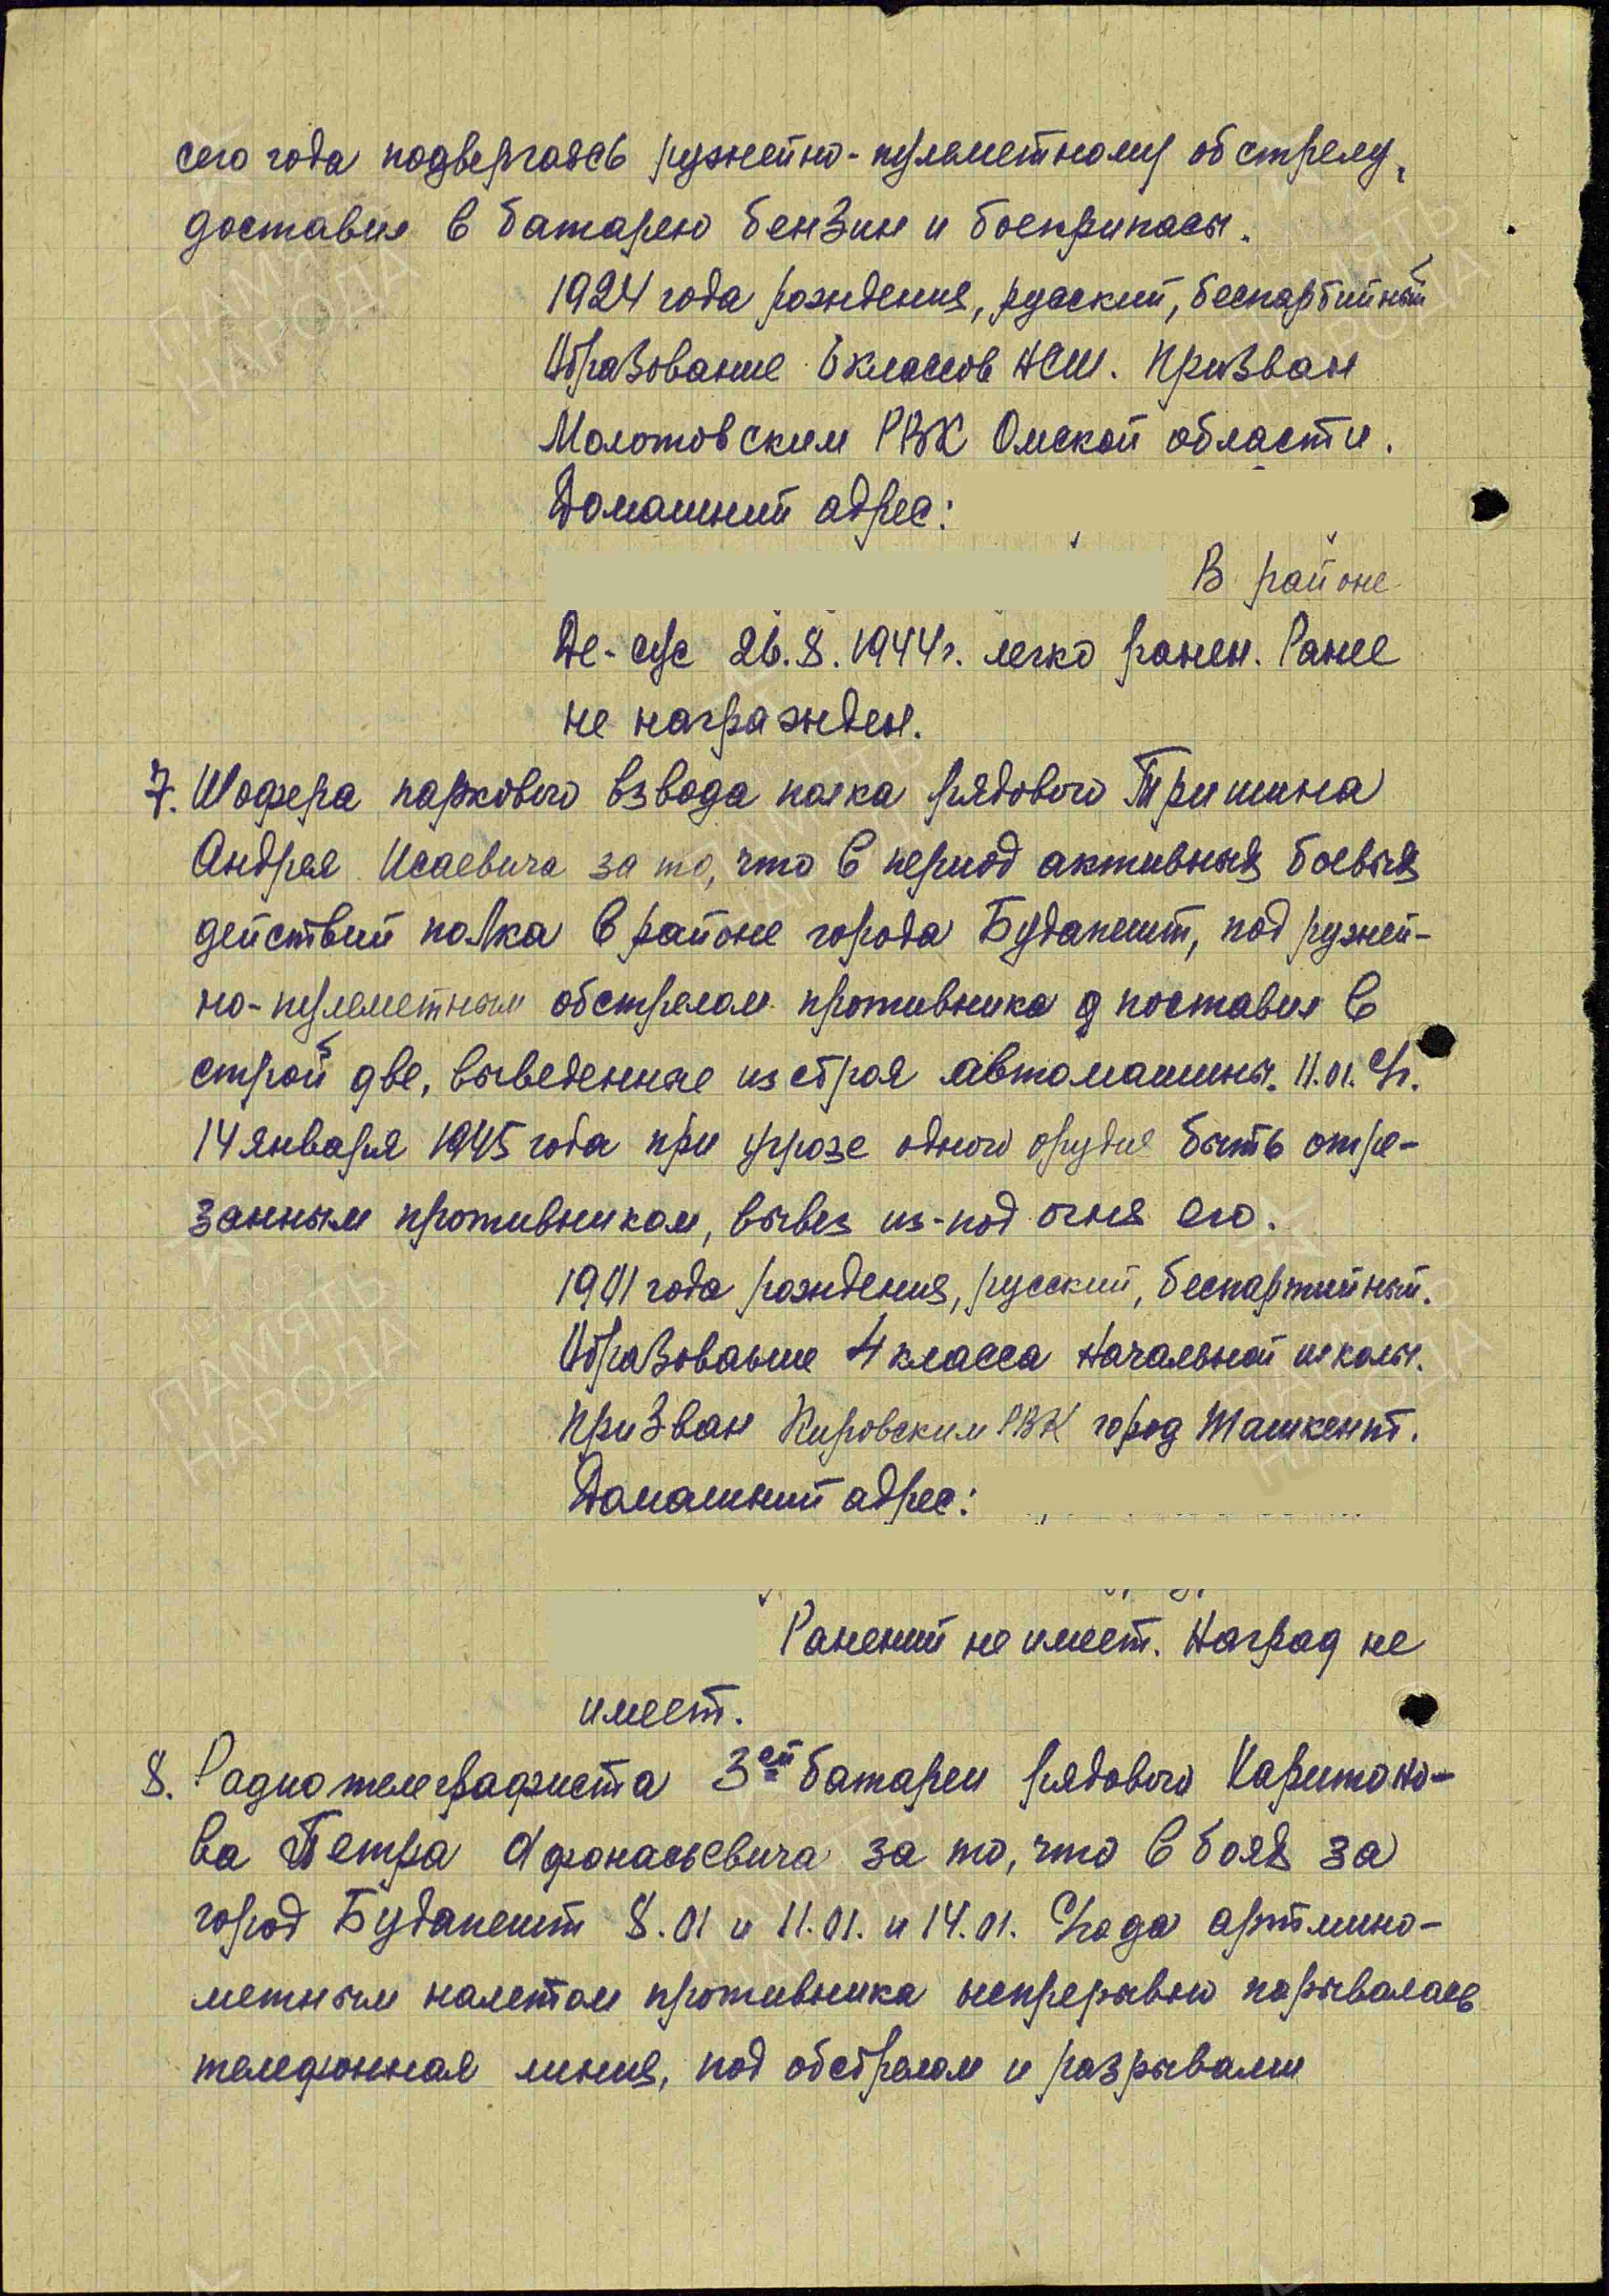 сего года подвергаясь ружейно-пулеметному обстрелу,
доставил в батарею бензин и боеприпасы.
1924 года рождения, русский, беспартийный
Образование 6 классов НСШ. Призван
Молотовским РВК Омской области.
Домашний адрес:
В районе
26.8.1944г. легко ранен. Ранее
не награжден.
7. Шофера паркового взвода полка рядового Тришина
Андрея Исаевича за то, что в период активных боевых
действий полка в районе города Будапешт, под ружей-
но-пулеметным обстрелом противника поставил в
строй две, выведенные из строя автомашины. 11.01. с/г.
14 января 1945 года при угрозе одного орудия быть отре-
занным противником, вывез из-под огня его.
1911 года рождения, русский, беспартийный.
Образование 4 класса начальной школы.
Призван Кировским РВК город Ташкент.
Домашний адрес:
Ранений не имеет. Наград не
имеет.
8. Радиотелеграфиста 3ей батареи рядового Харитоно-
ва Петра Афонасьевича за то, что в боях за
город Будапешт 8.01 и 11.01. и 14.01. с/года артмино-
метным налетом противника непрерывно порывалась
телефонная линия, под обстрелом и разрывами
ПАМЯТЬ
НАРОДА